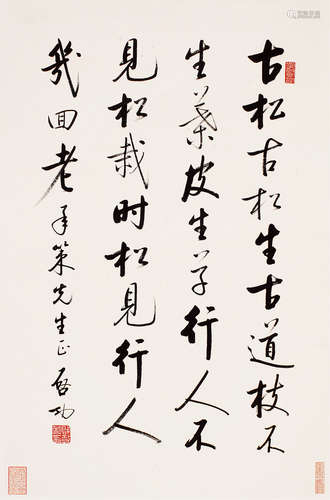 古松古松生古道枝不
生葉皮生草行人不
見松栽时松見行人
幾回老 承策先生正 启功